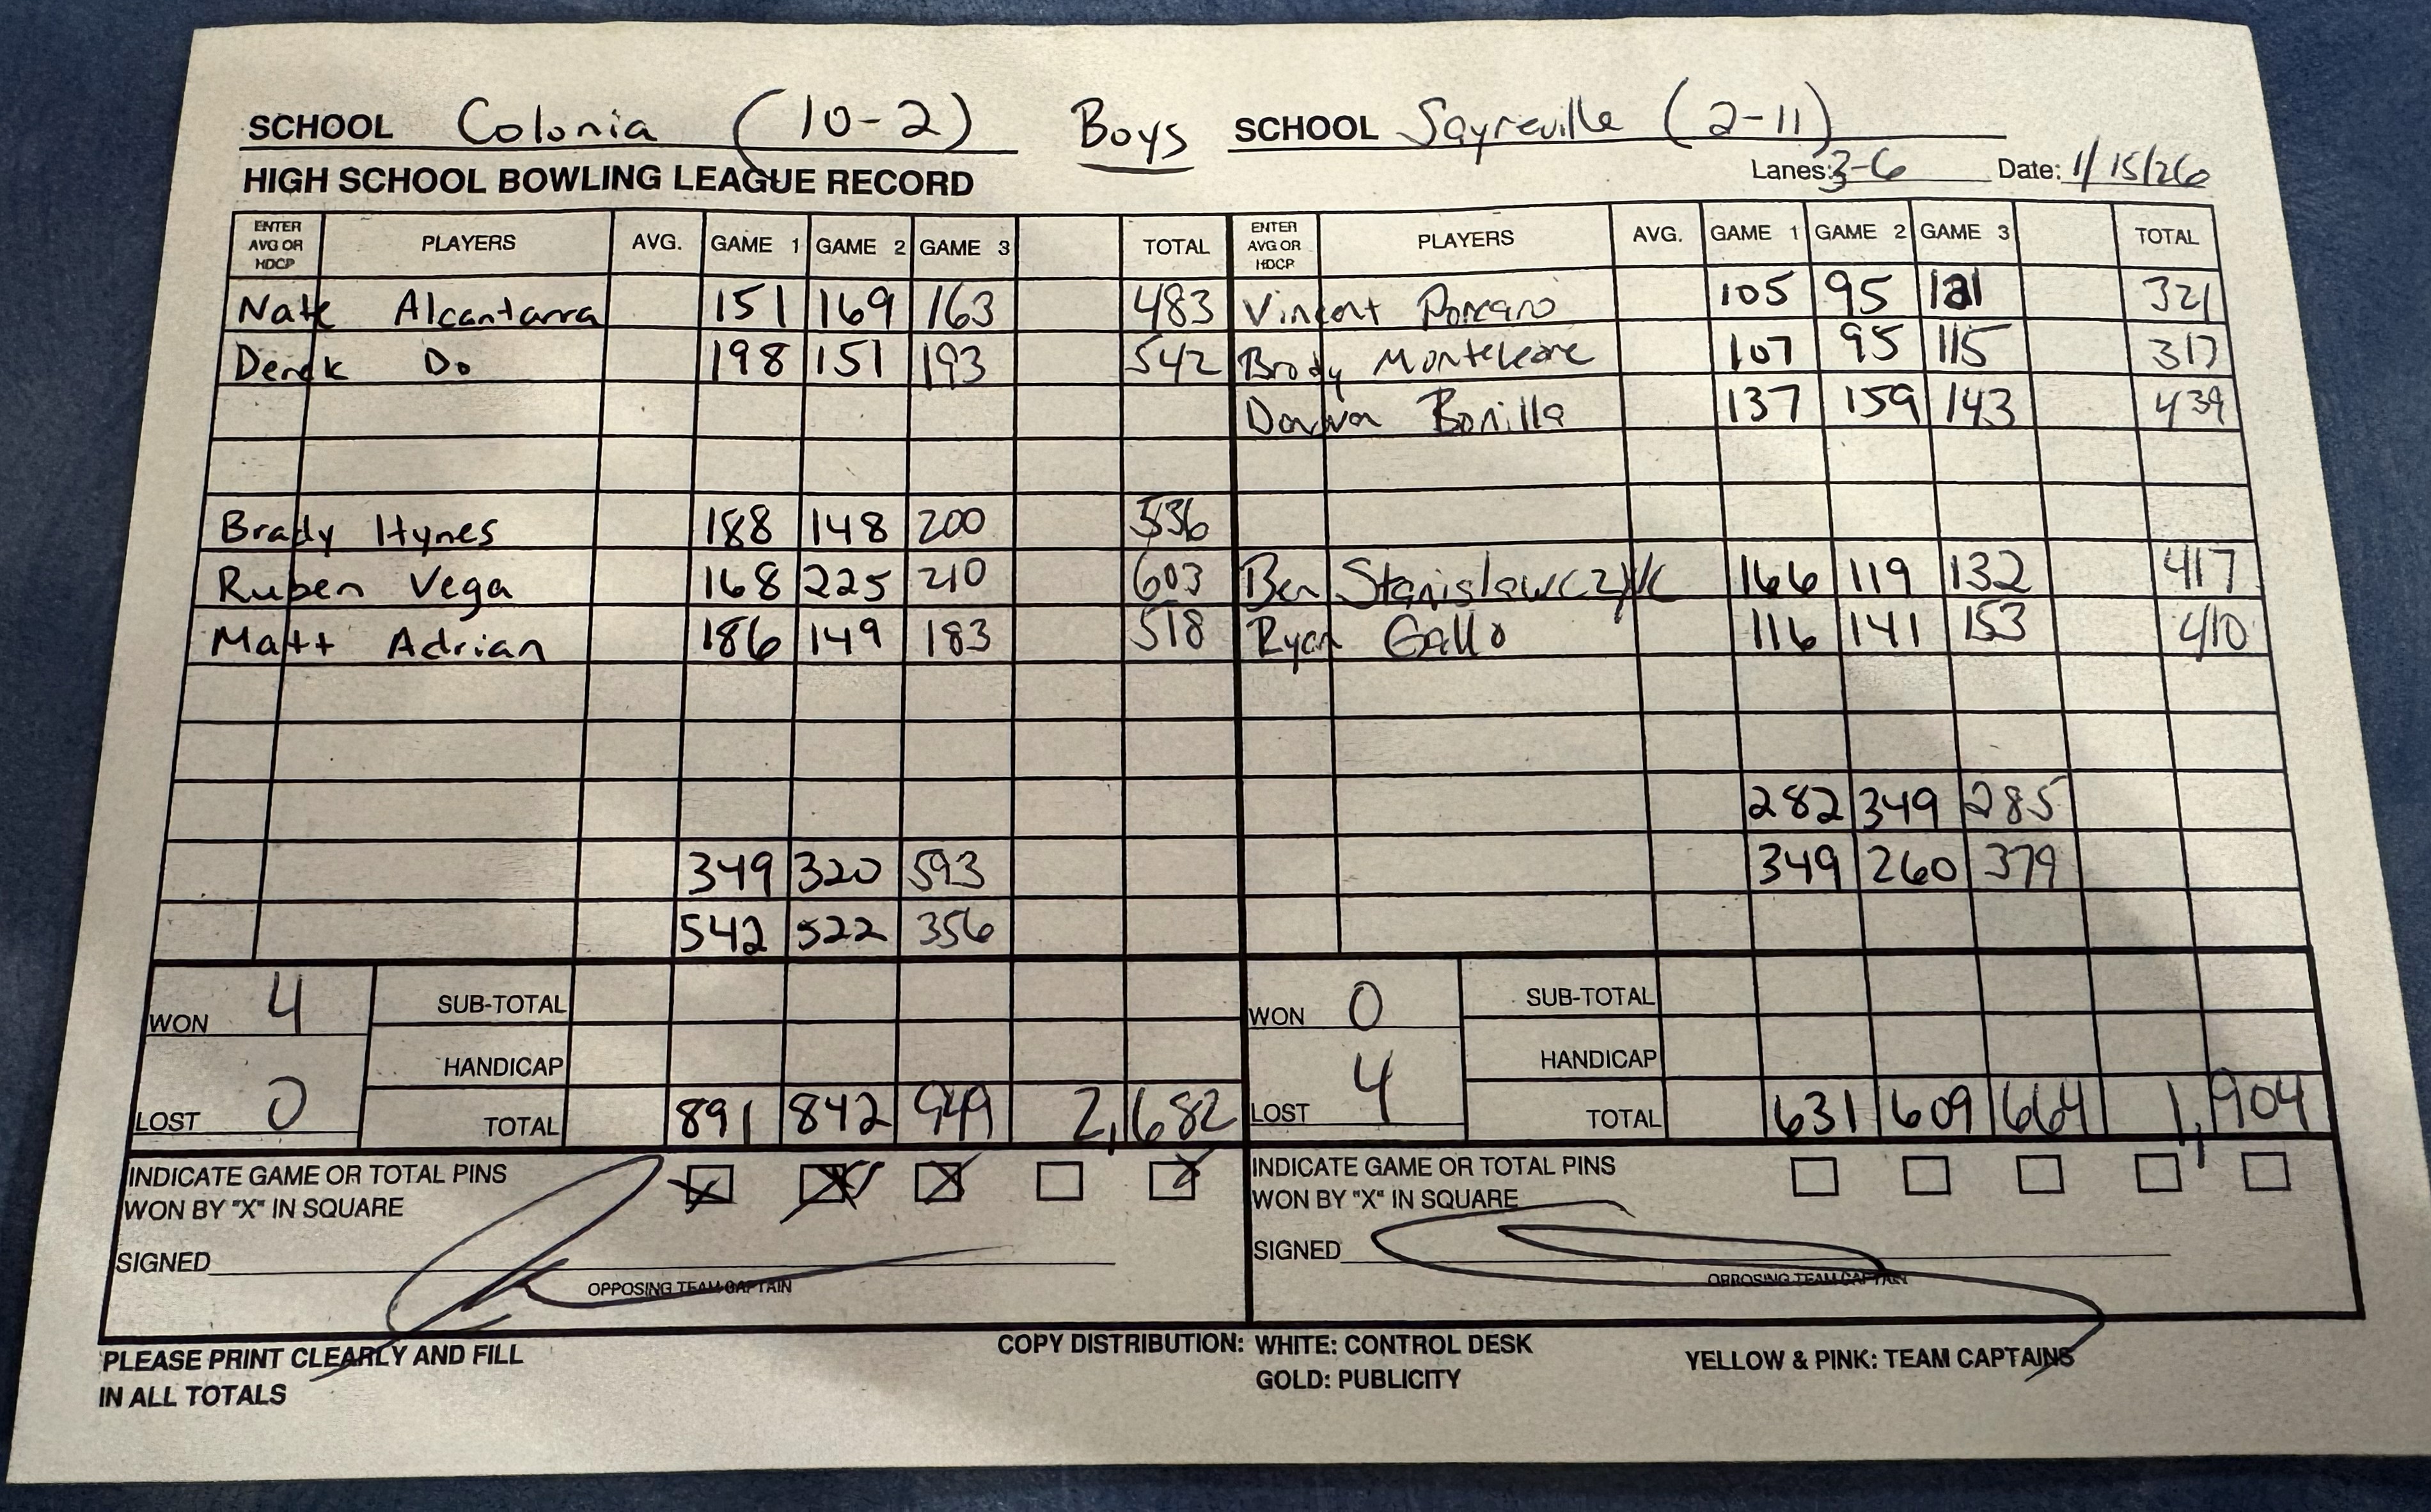 SCHOOL Colonia (10-2) Boys SCHOOL Sayreville (2-11)
HIGH SCHOOL BOWLING LEAGUE RECORD Lanes: 3-6 Date: 1/15/26
ENTER AVG OR HDCP PLAYERS AVG. GAME 1 GAME 2 GAME 3 TOTAL ENTER AVG OR HDCP PLAYERS AVG. GAME 1 GAME 2 GAME 3 TOTAL
Nate Alcantarra 151 169 163 483 Vincent 105 95 121 321
Derek Do 198 151 193 542 Brody Monteleone 107 95 115 317
Bonilla 137 159 143 439
Brady Hynes 188 148 200 536
Ruben Vega 168 225 210 603 Ben Stanislawczyk 166 119 132 417
Matt Adrian 186 149 183 518 Ryan Gallo 116 141 153 410
282 349 285
349 320 593 349 260 379
542 522 356
WON 4 SUB-TOTAL WON 0 SUB-TOTAL
HANDICAP HANDICAP
LOST 0 TOTAL 891 842 949 2,682 LOST 4 TOTAL 631 609 664 1,904
INDICATE GAME OR TOTAL PINS INDICATE GAME OR TOTAL PINS
WON BY "X" IN SQUARE WON BY "X" IN SQUARE
SIGNED SIGNED
OPPOSING TEAM CAPTAIN OPPOSING TEAM CAPTAIN
PLEASE PRINT CLEARLY AND FILL COPY DISTRIBUTION: WHITE: CONTROL DESK YELLOW & PINK: TEAM CAPTAINS
IN ALL TOTALS GOLD: PUBLICITY